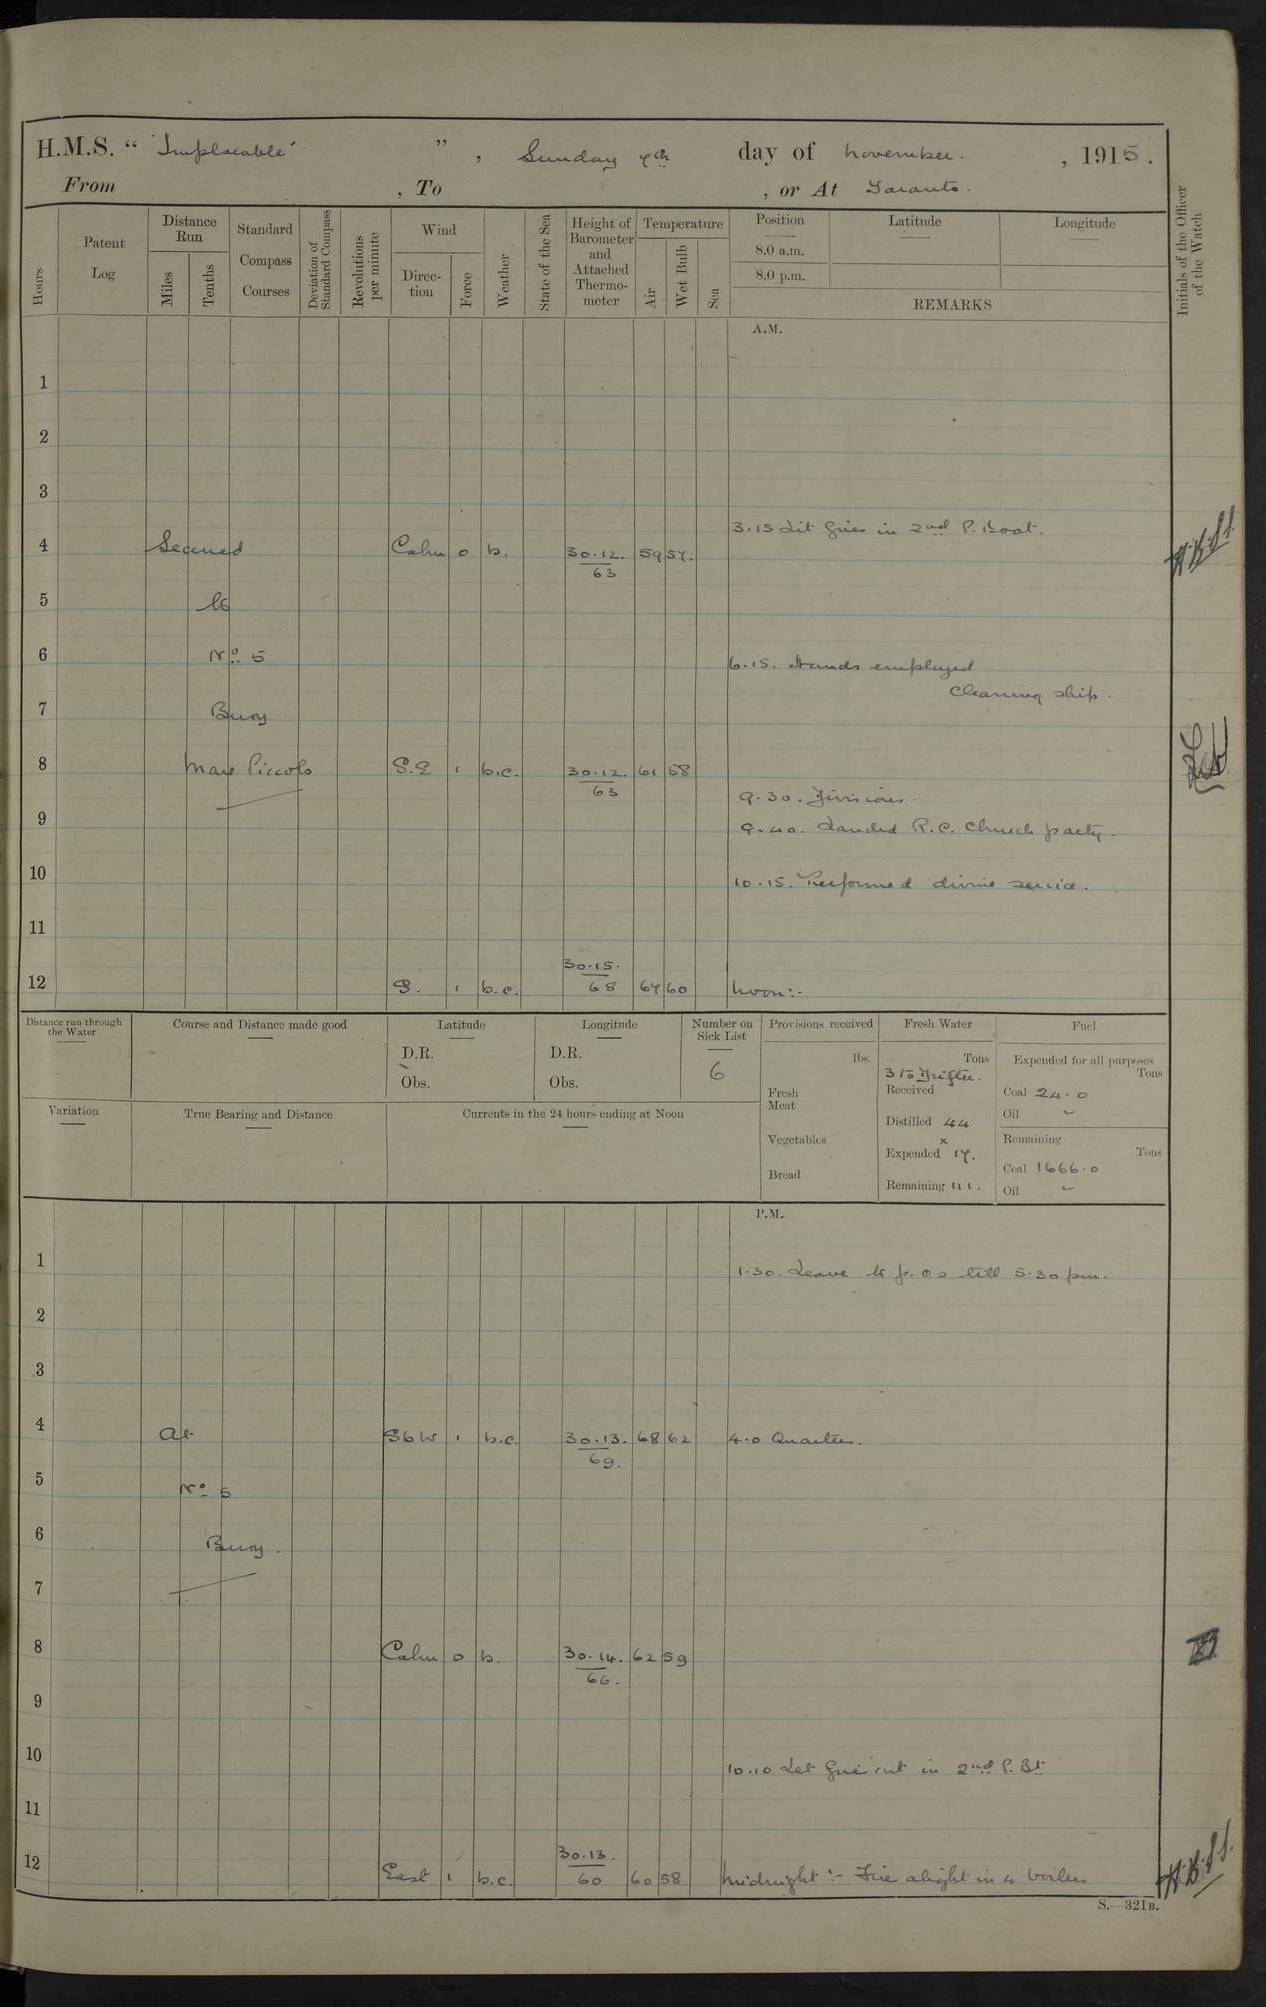 H.M.S. “ 'Implacable' ” , Sunday 7th day of November. , 1915.
From , To , or At Taranto.
Hours
Patent Log
Distance Run
Miles
Tenths
Standard Compass Courses
Deviation of Standard Compass
Revolutions per minute
Wind
Direc-tion
Force
Weather
State of the Sea
Height of Barometer and Attached Thermo-meter
Temperature
Air
Wet Bulb
Sea
Position
8.0 a.m.
8.0 p.m.
Latitude
Longitude
REMARKS
Initials of the Officer of the Watch
A.M.
1
2
3
3.15 Lit fires in 2nd P. Boat.
4 Secured Calm 0 b. 30.12. 59 57. H.B.S.
63
5 to
6 No. 5 6.15. Hands employed
cleaning ship.
7 Buoy
8 Mare Piccolo S.E 1 b.c. 30.12. 61 58
63
9.30. Divisions.
9 9.40. Landed R.C. Church party.
10 10.15. Performed divine service.
11
30.15.
12 S. 1 b.c. 68 64 60 Noon:-
Distance run through the Water
Course and Distance made good
Latitude
D.R.
Obs.
Longitude
D.R.
Obs.
Number on Sick List
6
Provisions received
lbs.
Fresh Meat
Vegetables
Bread
Fresh Water
Tons
Received
Distilled 44
x
Expended 17.
Remaining 111.
Fuel
Expended for all purposes
Tons
Coal 24.0
Oil
Remaining
Tons
Coal 1666.0
Oil
Variation
True Bearing and Distance
Currents in the 24 hours ending at Noon
P.M.
1 1.30. Leave to p.os till 5.30 pm.
2
3
4 At SbW 1 b.c. 30.13. 68 62 4.0 Quarters.
69.
5 No. 5
6 Buoy.
7
8 Calm 0 b. 30.14. 62 59
66.
9
10 10.10 Let fires out in 2nd P. Bt.
11
30.13.
12 East 1 b.c. 60 60 58 Midnight:- Fires alight in 4 boilers
H.B.S.
S.—321B.